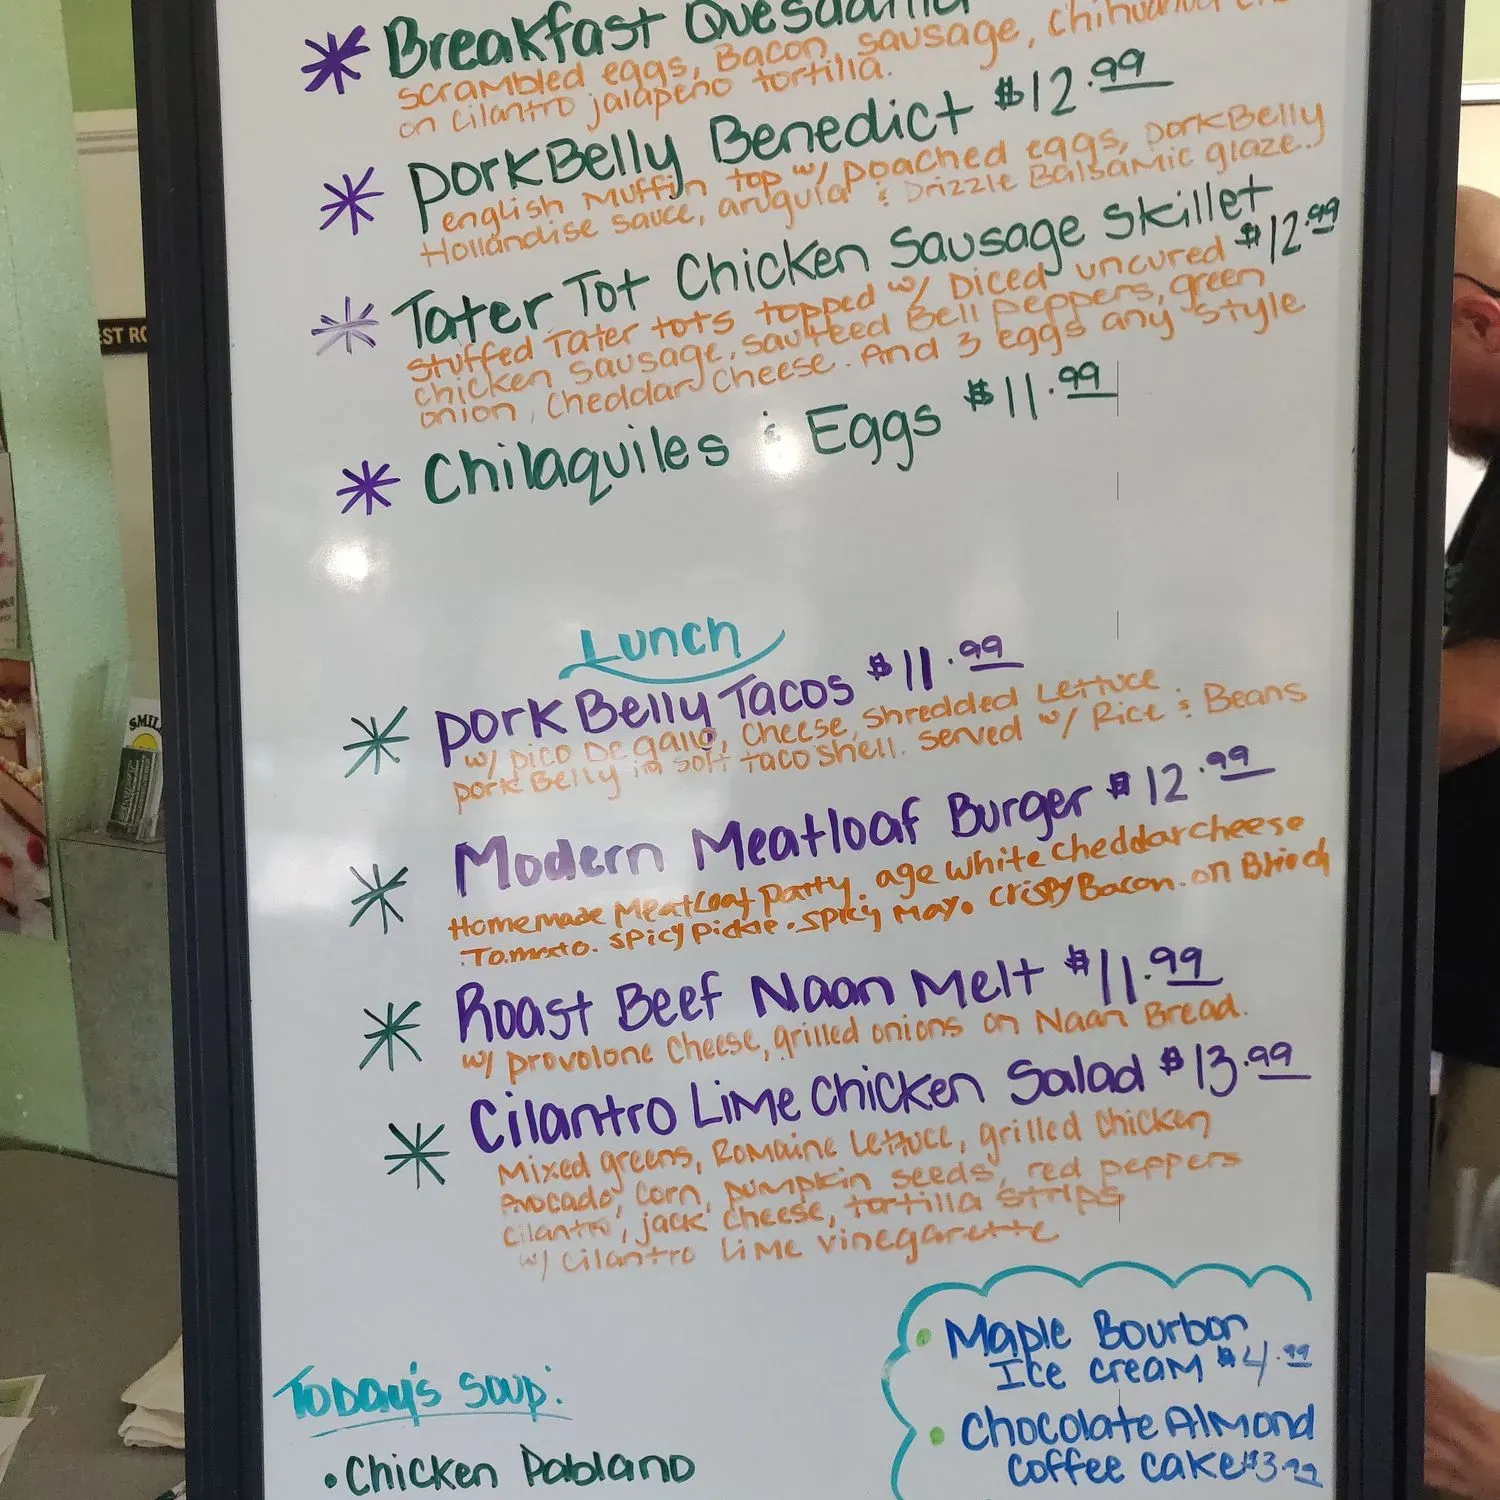 Breakfast Quesadilla
scrambled eggs, Bacon, sausage,
on cilantro jalapeno tortilla.
PorkBelly Benedict $12.99
english Muffin top w/ poached eggs, porkBelly
Hollandise sauce, arugula & Drizzle Balsamic glaze.
Tater Tot Chicken Sausage Skillet
$12.99
Stuffed Tater tots topped w/ Diced uncured
chicken sausage, sauteed Bell peppers, green
onion, Cheddar Cheese. And 3 eggs any style
Chilaquiles & Eggs $11.99
Lunch
pork Belly Tacos $11.99
w/ pico De gallo, Cheese, shredded Lettuce
pork Belly in soft taco shell. served w/ Rice & Beans
Modern Meatloaf Burger $12.99
Homemade Meatloaf patty. age white cheddar cheese
Tomato. spicy pickle. spicy mayo. crispy Bacon. on Brioch
Roast Beef Naan Melt $11.99
w/ provolone cheese, grilled onions on Naan Bread.
Cilantro Lime Chicken Salad $13.99
Mixed greens, Romaine Lettuce, grilled chicken
Avocado, corn, pumpkin seeds, red peppers
cilantro, jack cheese, tortilla strips
w/ cilantro lime vinegarette
Today's soup:
• Chicken Pablano
• Maple Bourbon
Ice cream $4.99
• Chocolate Almond
coffee cake $3.99
EST RO
SMIL